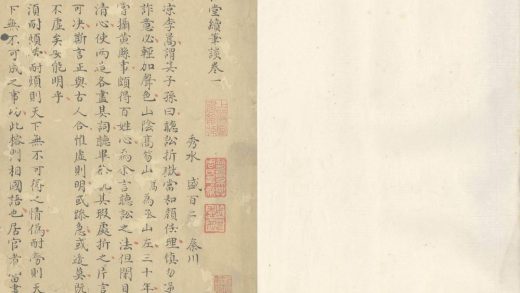 堂續筆談卷一
秀水 盛百二 秦川
涼李暠謂其子孫曰聽訟折獄當和顏任理慎勿逆
詐意必輕加聲色山陰高山為丞山左三十年
嘗攝黃縣事頗得百姓心為余言聽訟之法但閉目
清心使兩造各盡其詞聽畢於其瑕處折之片言
可決斷言正與古人合惟虛則明或躁急或莫既
不虛矣安能明乎
須耐煩耐勞耐煩則天下無不可得之情偽耐勞則天
下無不可成之事均此榕門相國語也居官者當書